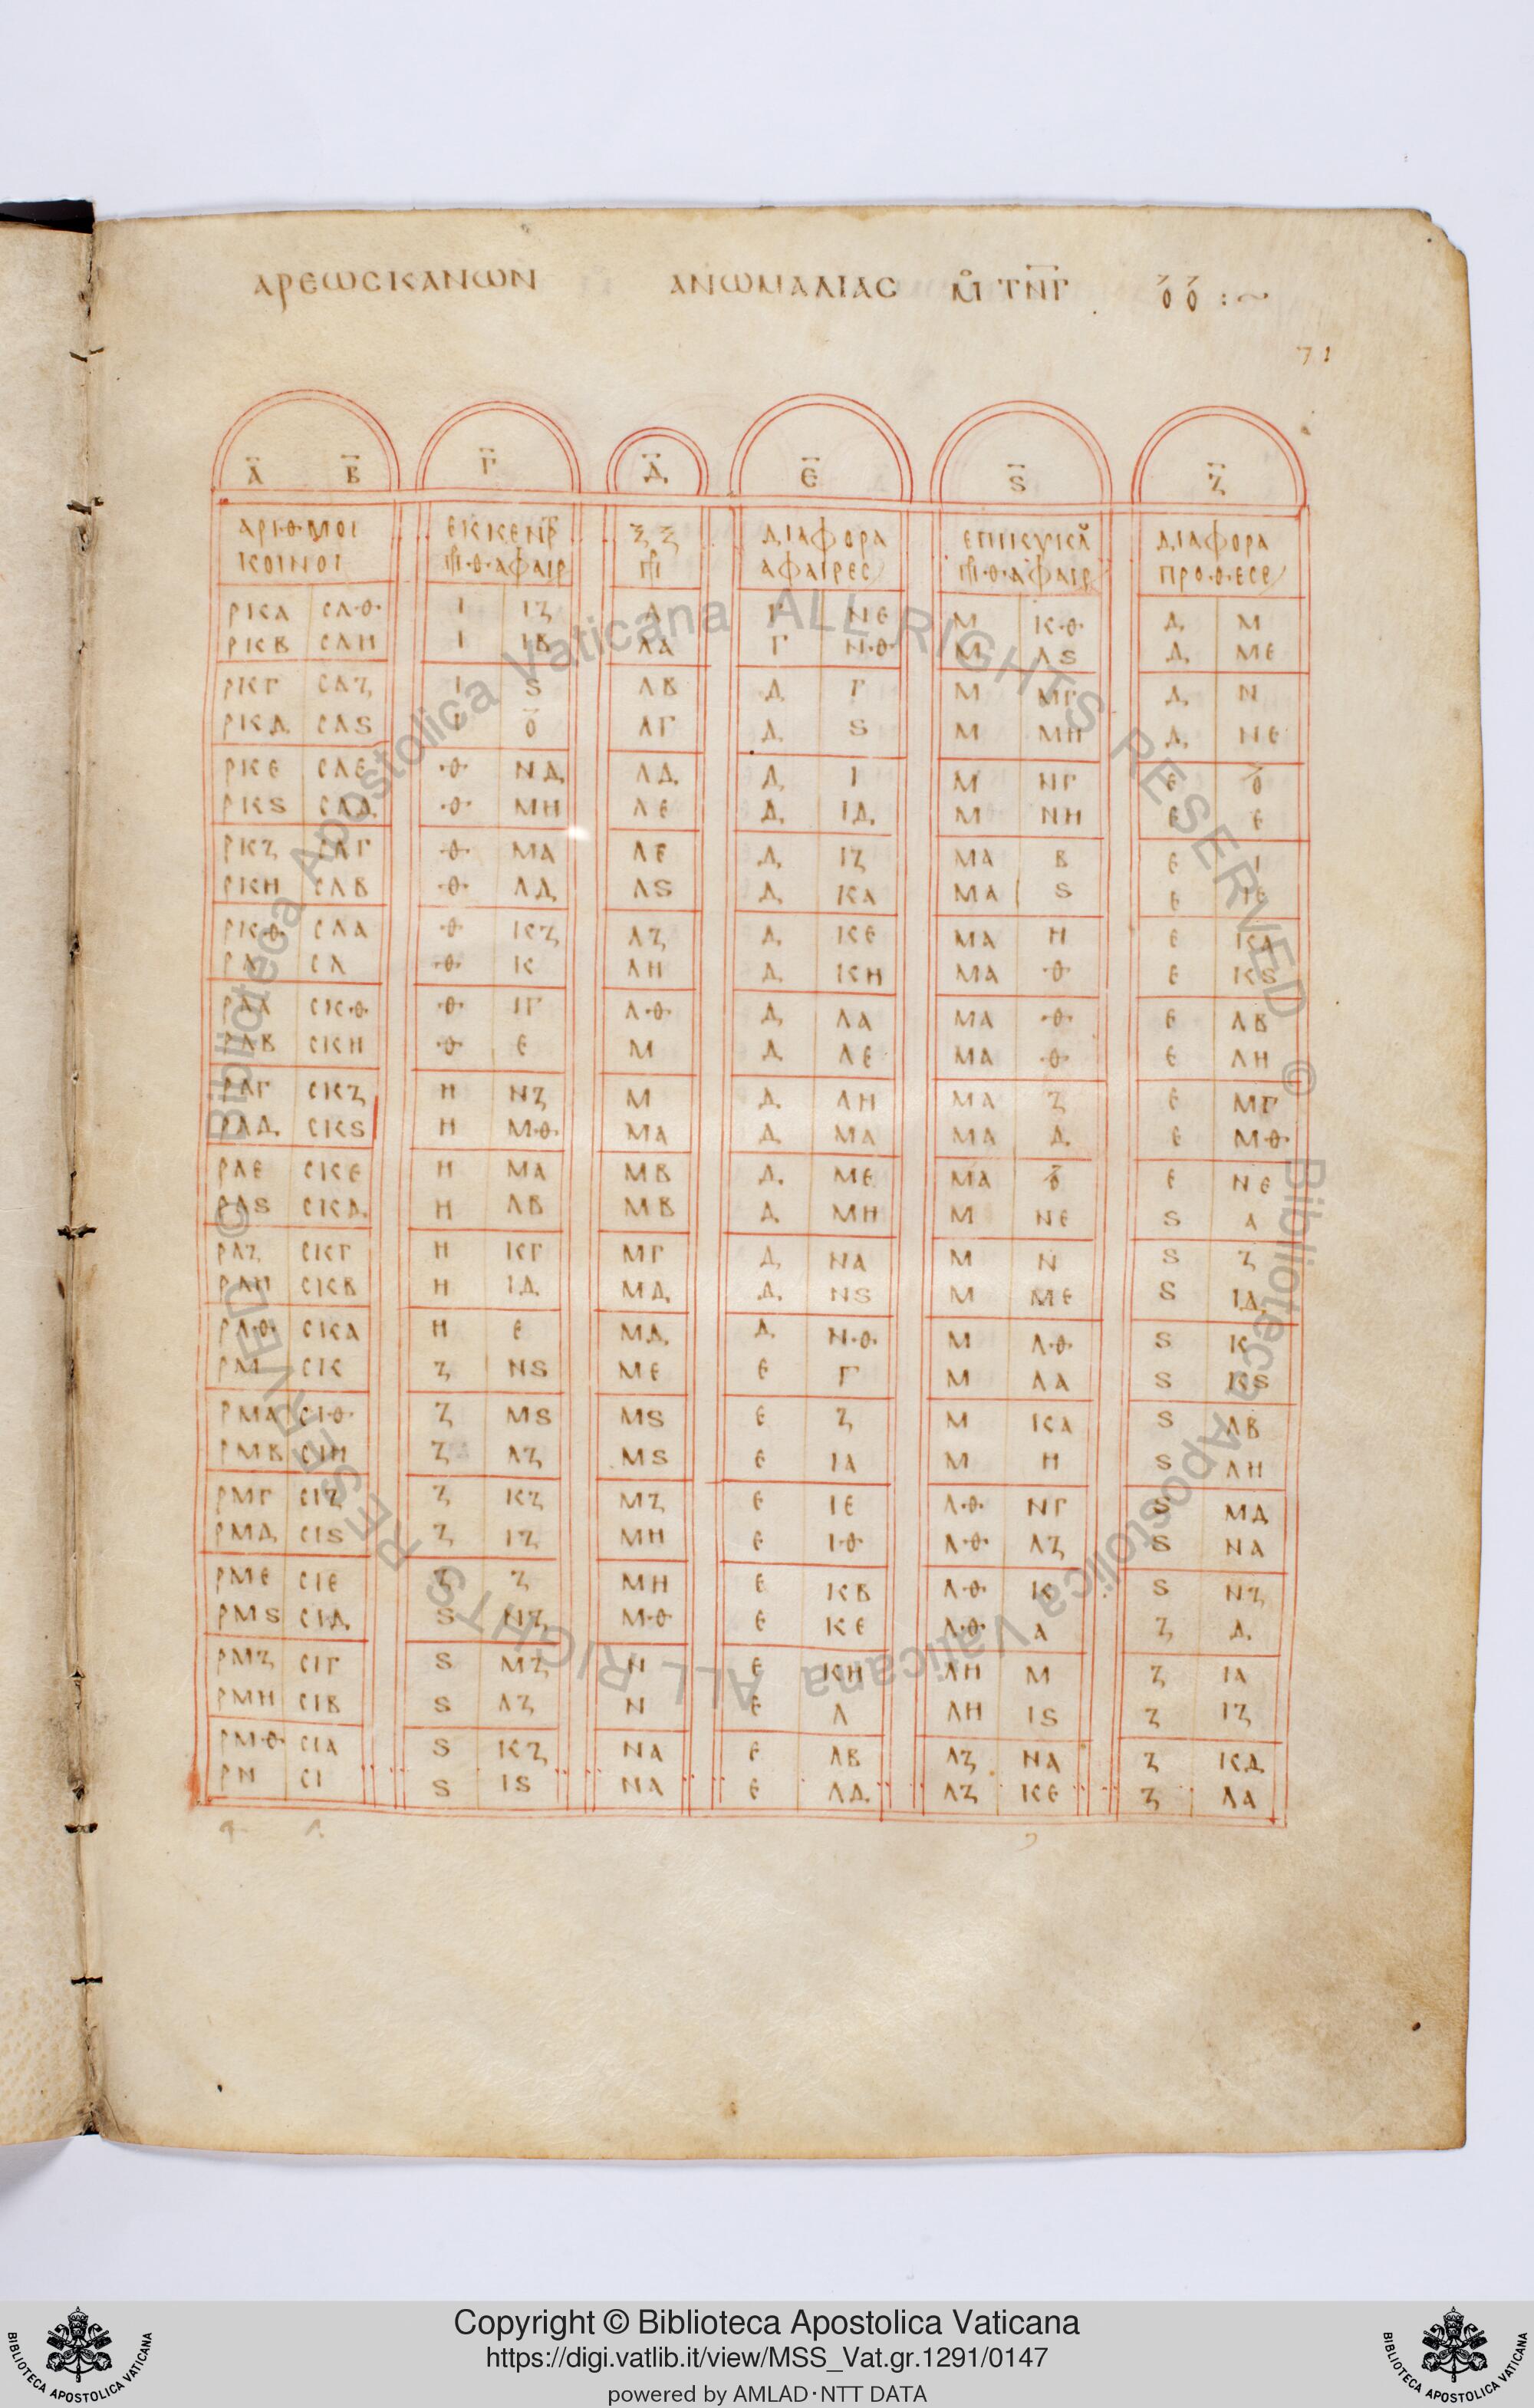 ΑΡΕΩС ΚΑΝΩΝ ΑΝΩΜΑΛΙΑС ΤΝΓ
71
Α Β Γ Δ Ε Ϛ Ζ
ΑΡΙΘΜΟΙ ΕΚΚΕΝΡ ΞΞ ΔΙΑΦΟΡΑ ΕΠΙΚΥΚΛ ΔΙΑΦΟΡΑ
ΚΟΙΝΟΙ ΑΦΑΙΡΕС ΠΡΟΘΕСΕ
ΡΚΑ СΛΘ Ι ΙΖ Λ Γ ΝΕ Μ ΚΘ Δ Μ
ΡΚΒ СΛΗ Ι ΙΒ ΛΑ Γ ΝΘ Μ ΛϚ Δ ΜΕ
ΡΚΓ СΛΖ Ι Ϛ ΛΒ Δ Γ Μ ΜΓ Δ Ν
ΡΚΔ СΛϚ Ι Ο ΛΓ Δ Ϛ Μ ΜΗ Δ ΝΕ
ΡΚΕ СΛΕ Θ ΝΔ ΛΔ Δ Ι Μ ΝΓ Ε Ο
ΡΚϚ СΛΔ Θ ΜΗ ΛΕ Δ ΙΔ Μ ΝΗ Ε Ε
ΡΚΖ СΛΓ Θ ΜΑ ΛΕ Δ ΙΖ ΜΑ Β Ε Ι
ΡΚΗ СΛΒ Θ ΛΔ ΛϚ Δ ΚΑ ΜΑ Ϛ Ε ΙΕ
ΡΚΘ СΛΑ Θ ΚΖ ΛΖ Δ ΚΕ ΜΑ Η Ε ΚΑ
ΡΛ СΛ Θ Κ ΛΗ Δ ΚΗ ΜΑ Θ Ε ΚϚ
ΡΛΑ СΚΘ Θ ΙΓ ΛΘ Δ ΛΑ ΜΑ Θ Ε ΛΒ
ΡΛΒ СΚΗ Θ Ε Μ Δ ΛΕ ΜΑ Θ Ε ΛΗ
ΡΛΓ СΚΖ Η ΝΖ Μ Δ ΛΗ ΜΑ Ζ Ε ΜΓ
ΡΛΔ СΚϚ Η ΜΘ ΜΑ Δ ΜΑ ΜΑ Δ Ε ΜΘ
ΡΛΕ СΚΕ Η ΜΑ ΜΒ Δ ΜΕ ΜΑ Ο Ε ΝΕ
ΡΛϚ СΚΔ Η ΛΒ ΜΒ Δ ΜΗ Μ ΝΕ Ϛ Α
ΡΛΖ СΚΓ Η ΚΓ ΜΓ Δ ΝΑ Μ Ν Ϛ Ζ
ΡΛΗ СΚΒ Η ΙΔ ΜΔ Δ ΝϚ Μ ΜΕ Ϛ ΙΔ
ΡΛΘ СΚΑ Η Ε ΜΔ Δ ΝΘ Μ ΛΘ Ϛ Κ
ΡΜ СΚ Ζ ΝϚ ΜΕ Ε Γ Μ ΛΑ Ϛ ΚϚ
ΡΜΑ СΙΘ Ζ ΜϚ ΜϚ Ε Ζ Μ ΚΑ Ϛ ΛΒ
ΡΜΒ СΙΗ Ζ ΛΖ ΜϚ Ε ΙΑ Μ Η Ϛ ΛΗ
ΡΜΓ СΙΖ Ζ ΚΖ ΜΖ Ε ΙΕ ΛΘ ΝΓ Ϛ ΜΔ
ΡΜΔ СΙϚ Ζ ΙΖ ΜΗ Ε ΙΘ ΛΘ ΛΖ Ϛ ΝΑ
ΡΜΕ СΙΕ Ζ Ζ ΜΗ Ε ΚΒ ΛΘ Κ Ϛ ΝΖ
ΡΜϚ СΙΔ Ϛ ΝΖ ΜΘ Ε ΚΕ ΛΘ Α Ζ Δ
ΡΜΖ СΙΓ Ϛ ΜΖ Ν Ε ΚΗ ΛΗ Μ Ζ ΙΑ
ΡΜΗ СΙΒ Ϛ ΛΖ Ν Ε Λ ΛΗ ΙϚ Ζ ΙΖ
ΡΜΘ СΙΑ Ϛ ΚΖ ΝΑ Ε ΛΒ ΛΖ ΝΑ Ζ ΚΔ
ΡΝ СΙ Ϛ ΙϚ ΝΑ Ε ΛΔ ΛΖ ΚΕ Ζ ΛΑ
© Biblioteca Apostolica Vaticana ALL RIGHTS RESERVED © Biblioteca Apostolica Vaticana ALL RIGHTS RESERVED
Copyright © Biblioteca Apostolica Vaticana
https://digi.vatlib.it/view/MSS_Vat.gr.1291/0147
powered by AMLAD·NTT DATA
BIBLIOTECA APOSTOLICA VATICANA
BIBLIOTECA APOSTOLICA VATICANA